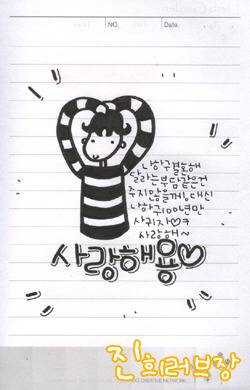 NO.
Date.
나하구결혼해
달라는부담같은건
주지않을께!, 대신
나하구100년만
사귀자♡ㅋ
사랑해~
사랑해용♡
진희러브장
CREATIVE NETWORK